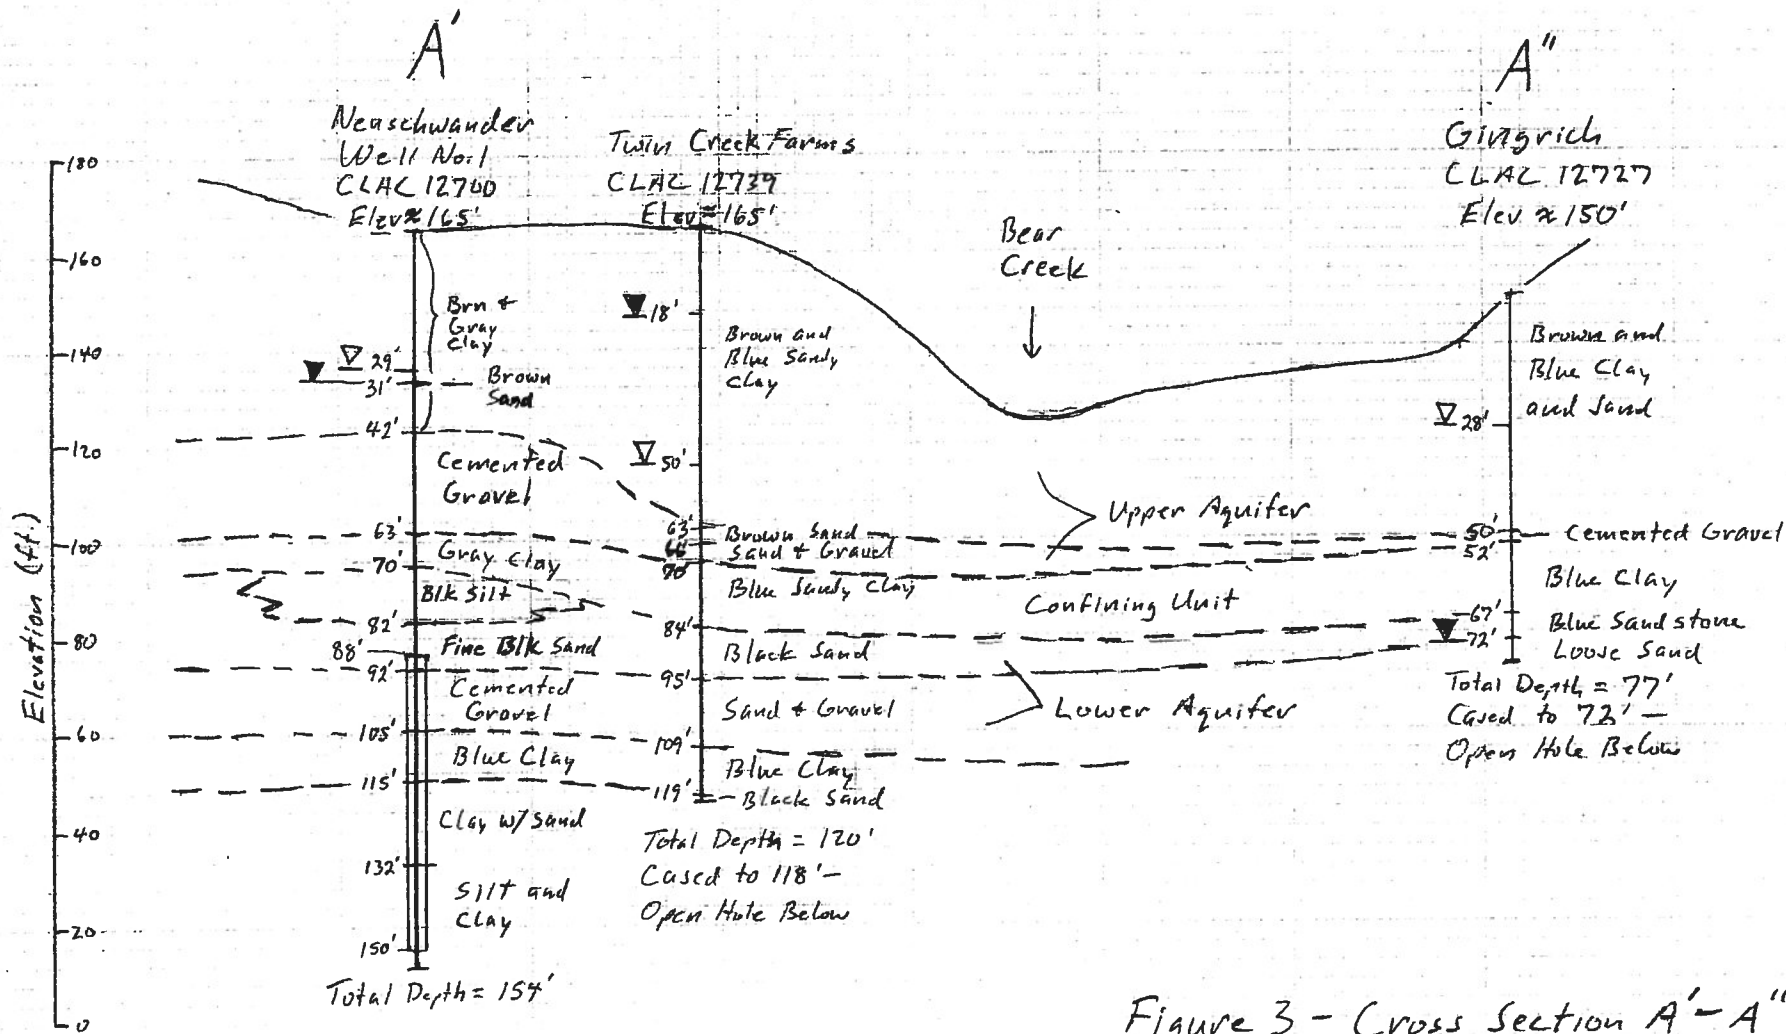 A'
A"
Neuschwander
Well No.1
CLAC 12700
Elev ≈ 165'
Twin Creek Farms
CLAC 12739
Elev ≈ 165'
Gingrich
CLAC 12727
Elev ≈ 150'
Bear
Creek
Elevation (ft.)
180
160
140
120
100
80
60
40
20
0
Brn +
Gray
Clay
29'
31'
Brown
Sand
42'
Cemented
Gravel
63'
Gray Clay
70'
Blk Silt
82'
Fine Blk Sand
88'
92'
Cemented
Gravel
105'
Blue Clay
115'
Clay w/ Sand
132'
Silt and
Clay
150'
Total Depth = 154'
18'
Brown and
Blue Sandy
Clay
50'
63'
Brown Sand
66'
Sand + Gravel
70'
Blue Sandy Clay
84'
Black Sand
95'
Sand + Gravel
109'
Blue Clay
119'
Black Sand
Total Depth = 120'
Cased to 118' –
Open Hole Below
Upper Aquifer
Confining Unit
Lower Aquifer
Brown and
Blue Clay
and Sand
28'
50'
Cemented Gravel
52'
Blue Clay
67'
Blue Sandstone
72'
Loose Sand
Total Depth = 77'
Cased to 72' –
Open Hole Below
Figure 3 - Cross Section A' - A"